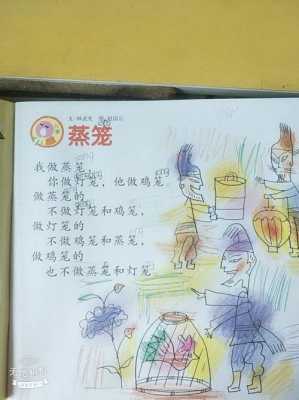 蒸笼
我做蒸笼
你做灯笼，他做鸡笼。
做蒸笼的
不做灯笼和鸡笼，
做灯笼的
不做鸡笼和蒸笼，
做鸡笼的
也不做蒸笼和灯笼。